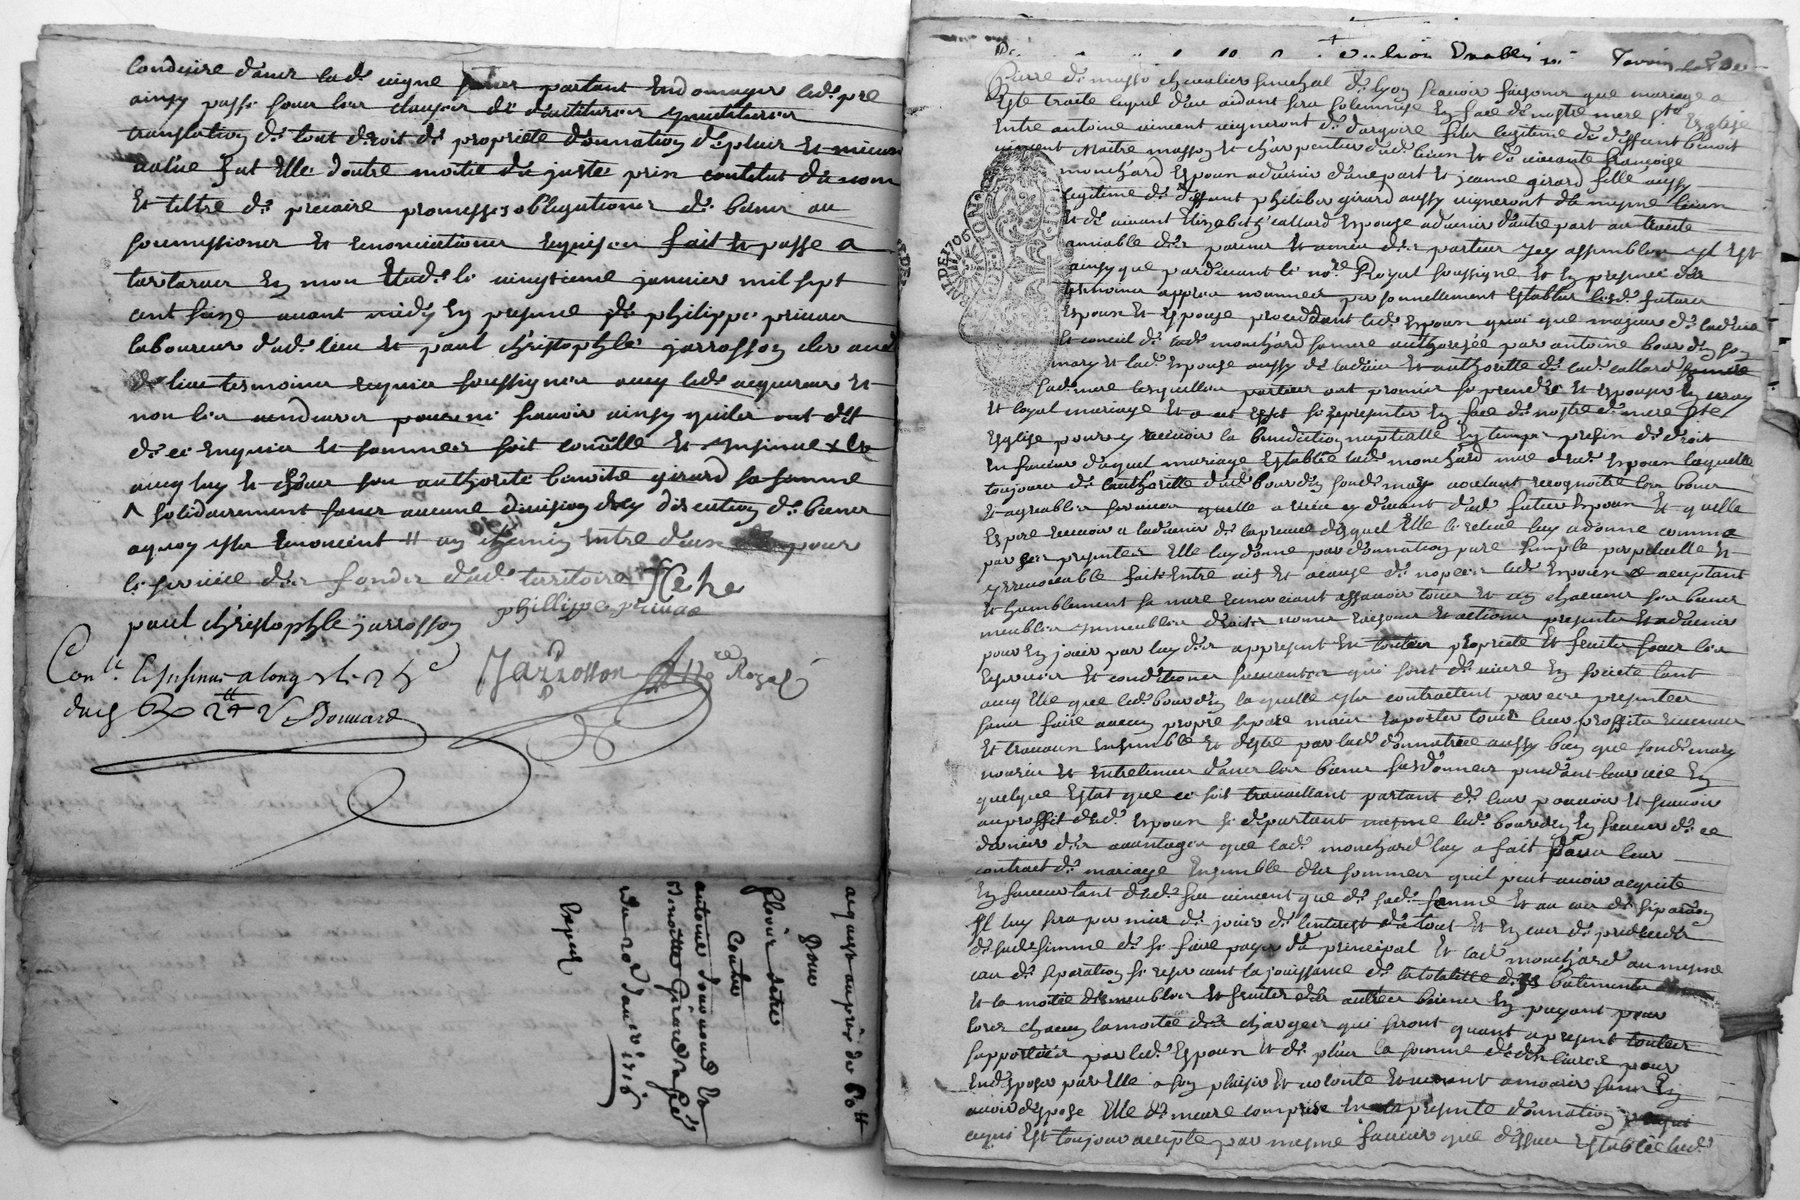 conduire dans lad. vigne partant endomager led. pré
ainsy passé sous les clauses de
translation de tout droit de propriete donnation de plus et mieux
value fut elle doutre moitié du juste prix contitut du nom
et tiltre de precaire promesses obligations de biens au
soumissions et renonciations requises fait et passé a
tartaras en mon etude le vingtieme janvier mil sept
cent seize avant midy en presence de philippe primas
laboureur dud. lieu et paul christophle jarrosson clerc aud
de lieu tesmoins requis soussignes avec led. acquereur et
non les vendeurs pour ne scavoir ainsy quils ont dit
de ce enquis et sommes soit controllé et insinué
avec luy et sous son authorité benoite girard sa femme
solidairement sans aucune division ny discution de biens
a quoy ils renoncent un chemin entre deux pour
le service des fonds dud. territoire
phillippe primas
paul christophle jarrosson
Jarrosson Nre Royal
Conlé & insinué a long le 25e
dud Bonnard
acquest au prix de 60 tt
pour
fleurie
contre
antoine et
Benoitte Girard
du 20 Janvr 1716
Pierre de masso chevalier senechal de lyon scavoir faisons que mariage a
esté traité lequel dieu aidant sera solemnisé en face de nostre mere ste esglise
entre antoine vincent vigneront de dargoire fils legitime de deffunt benoit
vincent maitre masson et charpentier dud. lieu et de vivante françoise
monchard espoux advenir d'une part et jeanne girard fille aussy
legitime de deffunt philibert girard aussy vigneront du mesme lieu
et de vivant elizabeth callard espouse advenir d'autre part au traité
amiable des parens et amis des parties icy assembles il est
ainsy que pardevant le nore Royal soussigné et en presence des
tesmoins apprès nommés personnellement establis lesd. futurs
espoux et espouse procedant led. espoux quoi que majeur de l'advis
et conseil de lad. monchard sa mere authorisée par antoine bourdin son
mary et lad. espouse aussy de l'advis et authorité de lad. callard
sad. mere lesquelles parties ont promis se prendre et espouser en vray
et loyal mariage et a cet effet se representer en face de nostre d. mere ste
esglise pour y recevoir la benediction nuptialle en temps prefix de droit
en faveur duquel mariage establie lad. monchard mere dud. espoux laquelle
toujours de l'authorité dud. bourdin sond. mary voulant recognoitre les bons
et agreables services quelle a receu cy devant dud. futur espoux et quelle
espere recevoir a l'advenir de la preuve desquels elle le releve luy a donné comme
par ces presentes elle luy donne par donnation pure simple perpetuelle et
irrevocable faite entre vifs et a cause de nopces led. espoux acceptant
et humblement sa mere remerciant assavoir tous et un chacuns ses biens
meubles immeubles droits noms raisons et actions presents et advenir
pour en jouir par luy des a present en toute proprieté et fruits sous les
reserves et conditions suivantes qui sont de vivre en societe tant
avec elle que led. bourdin laquelle ils contractent par ces presentes
sans faire aucun propre separé mais raporter tous leur proffits revenus
et travaux ensemble et d'estre par lad. donnatrice aussy bien que sond. mary
nouris et entretenus dans les biens susdonnes pendant leur vie en
quelque estat que ce soit travaillant partant de leur pouvoir et scavoir
au proffit dud. espoux se departant mesme led. bourdin en faveur de ce
dernier des avantages que lad. monchard luy a fait dans leur
contract de mariage ensemble des sommes quil peut avoir acquité
en faveur tant dud. feu vincent que de sad. femme et au cas de separation
il luy sera permis de jouir de l'interest de tout et en cas de predeceds
de sad. femme de se faire payer du principal et lad. monchard au mesme
cas de separation se reservant la jouissance de la totalité des batiments
et la moitié des meubles et fruits des autres biens en payant pour
lors chacun la moitié des charges qui seront quant a present toutes
supportées par led. espoux et de plus la somme de livres pour
en disposer par elle a son plaisir et volonté et venant a mourir sans en
avoir disposé elle demeure comprise en la presente donnation
ce qui est toujour accepté par mesme faveur que dessus establie lad.